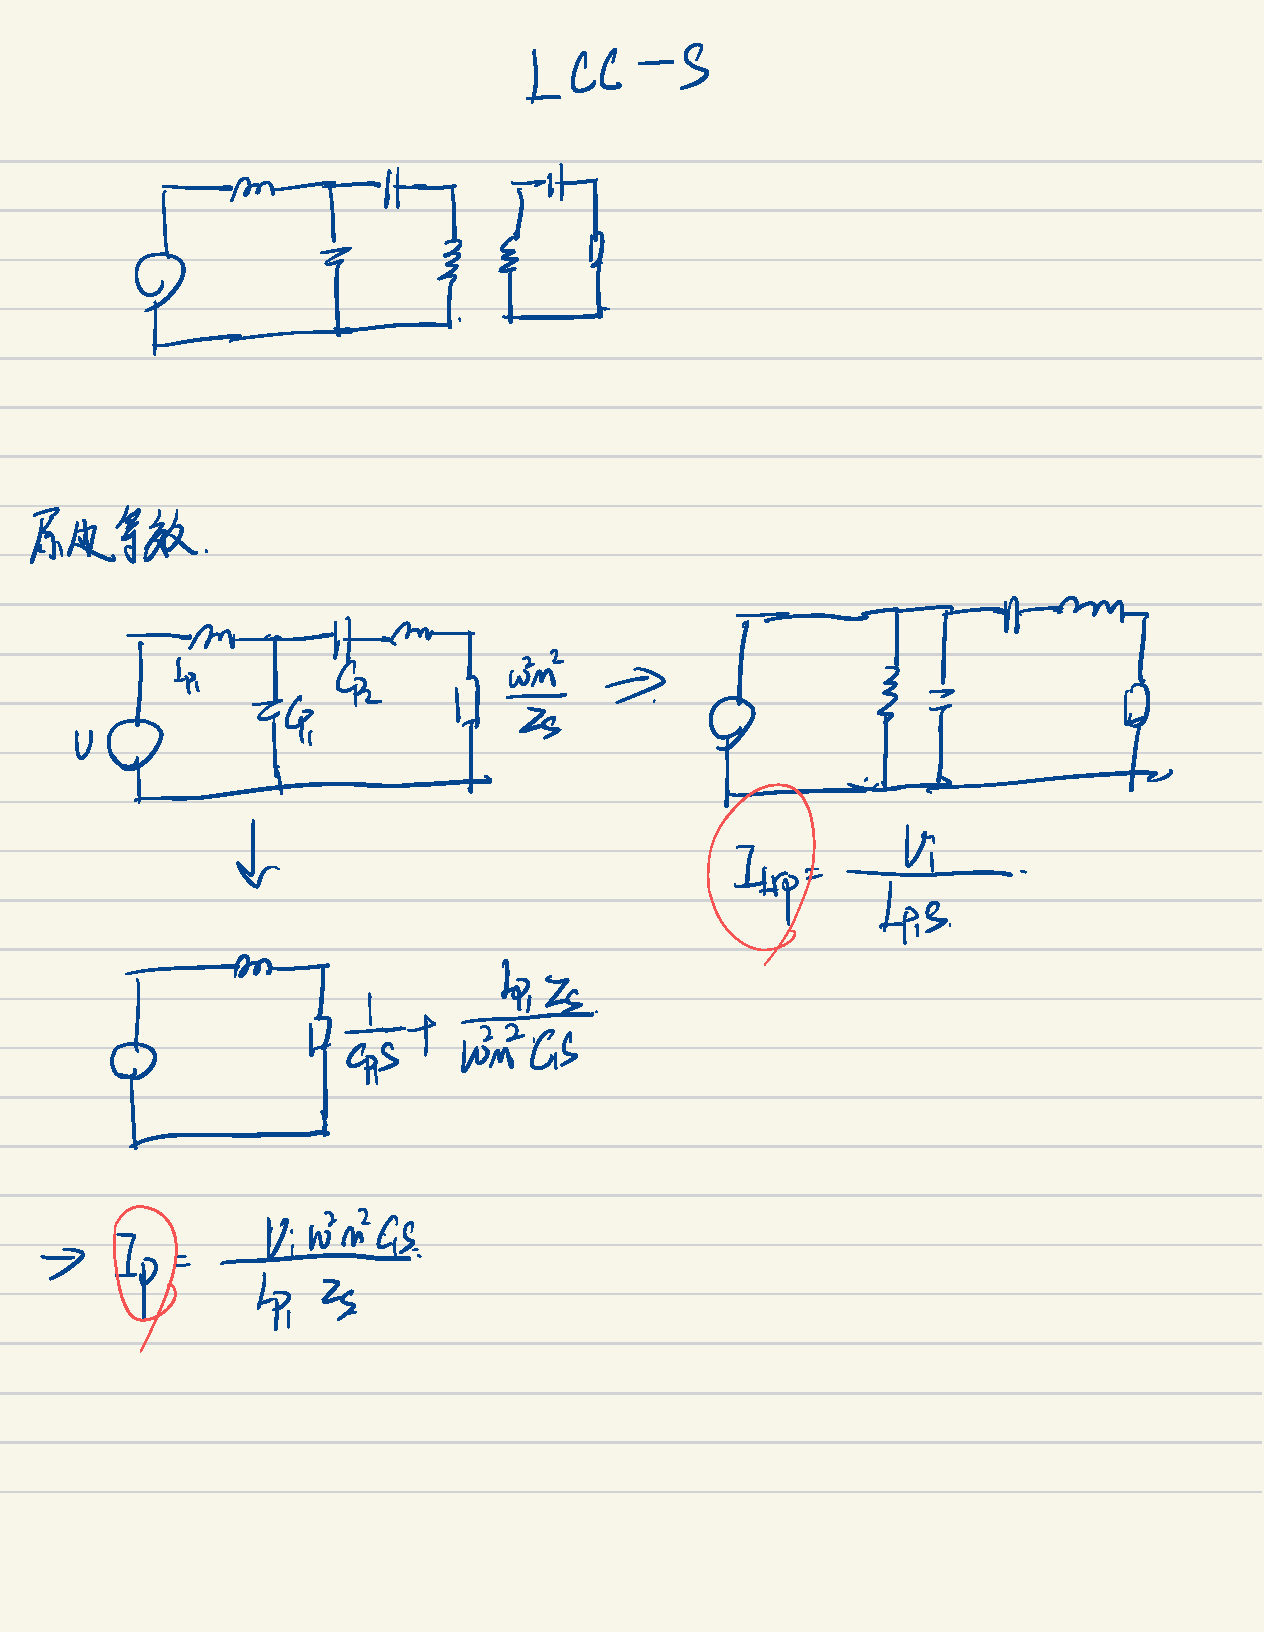 LCC-S
原边等效.
U
Lp₁
Cp₁
Cp₂
ω²m²/Zs
⇒
I_Lrp = Vi/(Lp₁s)
1/(Cp₁s) + Lp₁Zs/(ω²m²C₁s)
⇒ Ip = Viω²m²C₁s/(Lp₁ Zs)